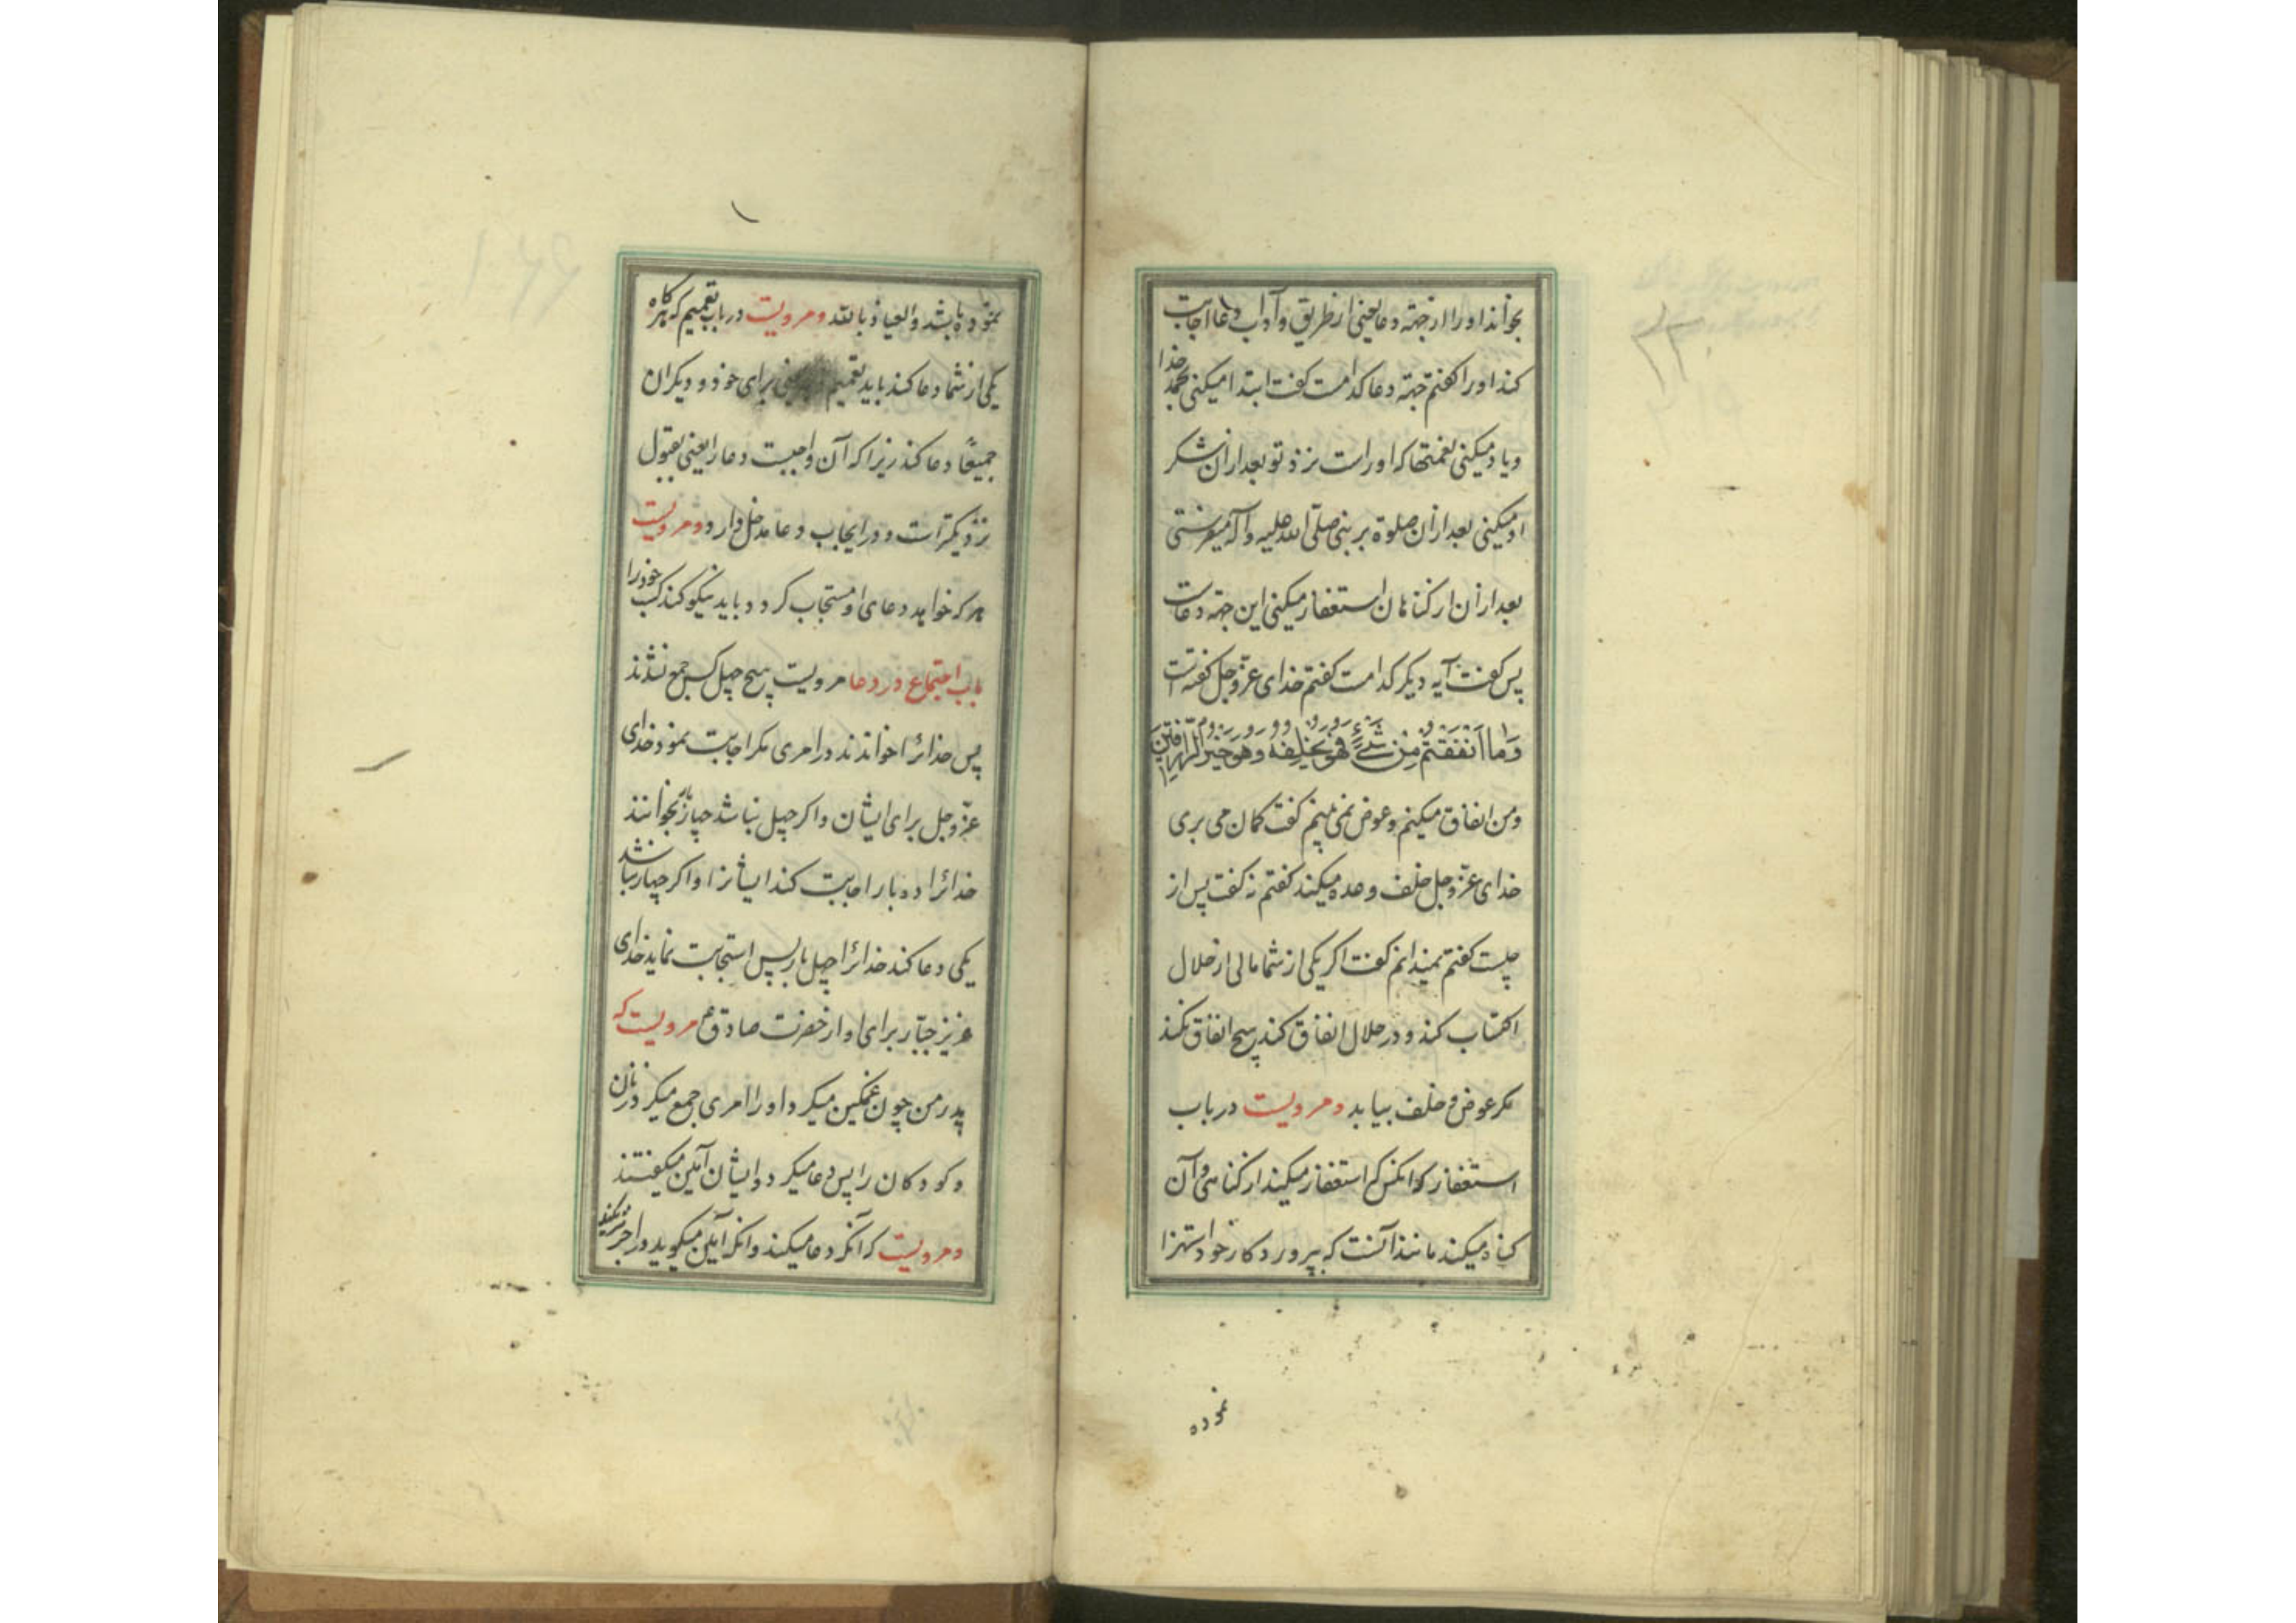 بخواند او را از جهة دعا یعنی از طریق و آداب دعا اجابت
کند او را گفتم جهة دعا کدامست گفت ابتدا میکنی بحمد خدا
و یاد میکنی نعمتها که او راست نزد تو بعد از آن شکر
او میکنی بعد از آن صلوة بر نبی صلّی الله علیه و آله میفرستی
بعد از آن از کناهان استغفار میکنی این جهة دعاست
پس گفت آیه دیگر کدامست گفتم خدای عزّ و جل گفته است
وَما اَنْفَقْتُمْ مِنْ شَیْءٍ فَهُوَ یُخْلِفُهُ وَهُوَ خَیْرُ الرّازِقینَ
و من انفاق میکنم و عوض نمی بینم گفت کمان می بری
خدای عزّ و جل خلف وعده میکند گفتم نه گفت پس از
چیست گفتم نمیدانم گفت اگر یکی از شما مالی از حلال
اکتساب کند و در حلال انفاق کند هیچ انفاق نکند
مگر عوض و خلف بیابد و مرویست در باب
استغفار که آنکس که استغفار میکند از کناهی و آن
کناه میکند مانند آنست که بپروردکار خود استهزا
نموده
نموده باشد و العیاذ بالله و مرویست در باب تعمیم که هرکاه
یکی از شما دعا کند باید تعمیم یعنی برای خود و دیکران
جمیعًا دعا کند زیرا که آن واجبست دعا را یعنی بقبول
نزدیکتر است و در ایجاب دعا مدخل دارد و مرویست
هر که خواهد دعای او مستجاب کردد باید نیکو کند کسب خود را
باب اجتماع در دعا مرویست هیچ چهل کس جمع نشدند
پس خدا را خواندند در امری مگر اجابت نمود خدای
عزّ و جل برای ایشان و اکر چهل نباشد چهار بخوانند
خدا را ده بار اجابت کند ایشانرا و اکر چهار نباشد
یکی دعا کند خدا را چهل بار پس استجابت نماید خدای
عزیز جبّار برای او از حضرت صادق ع مرویست که
پدر من چون غمکین میکرد او را امری جمع میکرد زنان
و کودکان را پس دعا میکرد و ایشان آمین میکفتند
و مرویست که آنکه دعا میکند و آنکه آمین میکوید در اجر شریکند